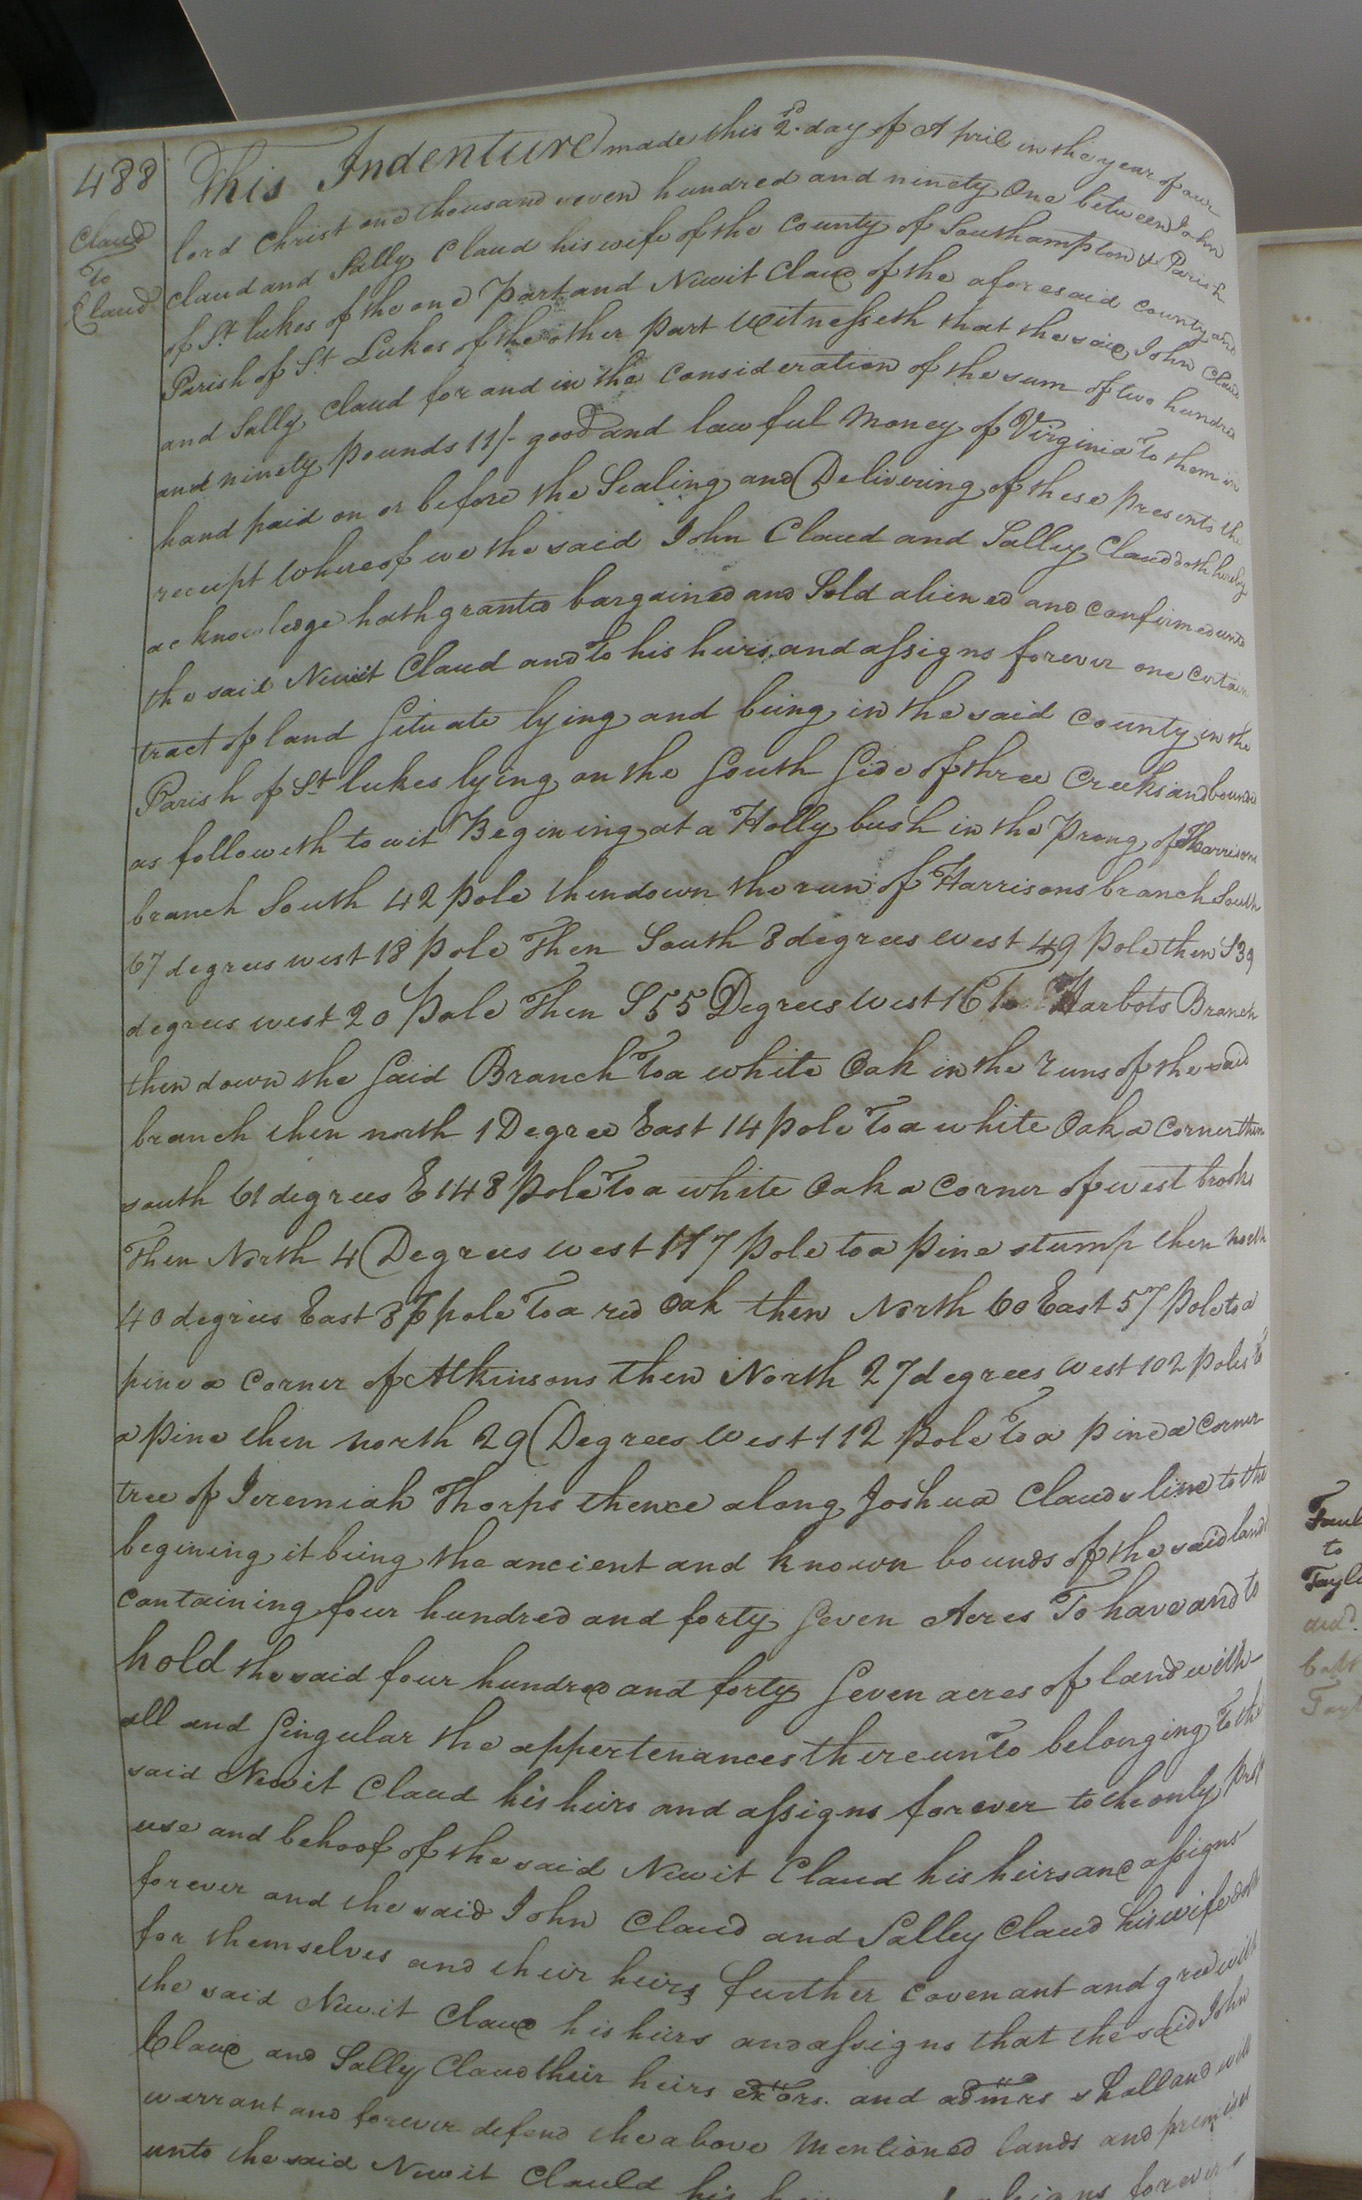 488
Claud
To
Claud
This Indenture made this 2d. day of April in the year of our
lord Christ one thousand seven hundred and ninety One between John
Claud and Sally Claud his wife of the County of Southampton & Parish
of St. lukes of the one Part and Newit Claud of the aforesaid County and
Parish of St. Lukes of the other part Witnesseth that the said John Claud
and Sally Claud for and in the Consideration of the sum of two hundred
and ninety Pounds 11/- good and lawful Money of Virginia To them in
hand paid on or before the Sealing and Delivering of these presents the
receipt Whereof we the said John Claud and Salley Claud doth hereby
acknowledge hath granted bargained and Sold aliened and confirmed unto
the said Newit Claud and To his heirs and assigns forever one certain
tract of land Situate lying and being in the said County in the
Parish of St. lukes lying on the South Side of three Creeks and bounded
as followeth to wit Begining at a Holly bush in the Prong of Harrisons
branch South 42 pole then down the run of Harrisons branch South
67 degrees west 18 pole Then South 8 degrees West 49 pole then S 39
degrees west 20 Pole Then S 55 Degrees West 16 To Harbots Branch
then down the Said Branch To a white Oak in the runs of the said
branch then north 1 Degree East 14 pole To a white Oak a Corner then
south 61 degrees E 148 pole To a white Oak a Corner of west brooks
Then North 4 Degrees West 117 pole to a pine stump then North
40 degrees East 86 pole To a red Oak then North 60 East 57 Pole to a
pine a Corner of Atkinsons then North 27 degrees West 102 poles to
a pine then north 29 Degrees West 112 pole To a pine a Corner
tree of Jeremiah Thorps thence along Joshua Clauds line to the
begining it being the ancient and known bounds of the said land
containing four hundred and forty Seven Acres To have and to
hold the said four hundred and forty Seven acres of land with
all and Singular the appertenances thereunto belonging To the
said Newit Claud his heirs and assigns forever to the only prop
use and behoof of the said Newit Claud his heirs and assigns
forever and the said John Claud and Salley Claud his wife doth
for themselves and their heirs further Covenant and gree with
the said Newit Claud his heirs and assigns that the said John
Claud and Sally Claud their heirs exors. and admrs shall and will
warrant and forever defend the above Mentioned lands and premises
unto the said Newit Clauld his forever
to